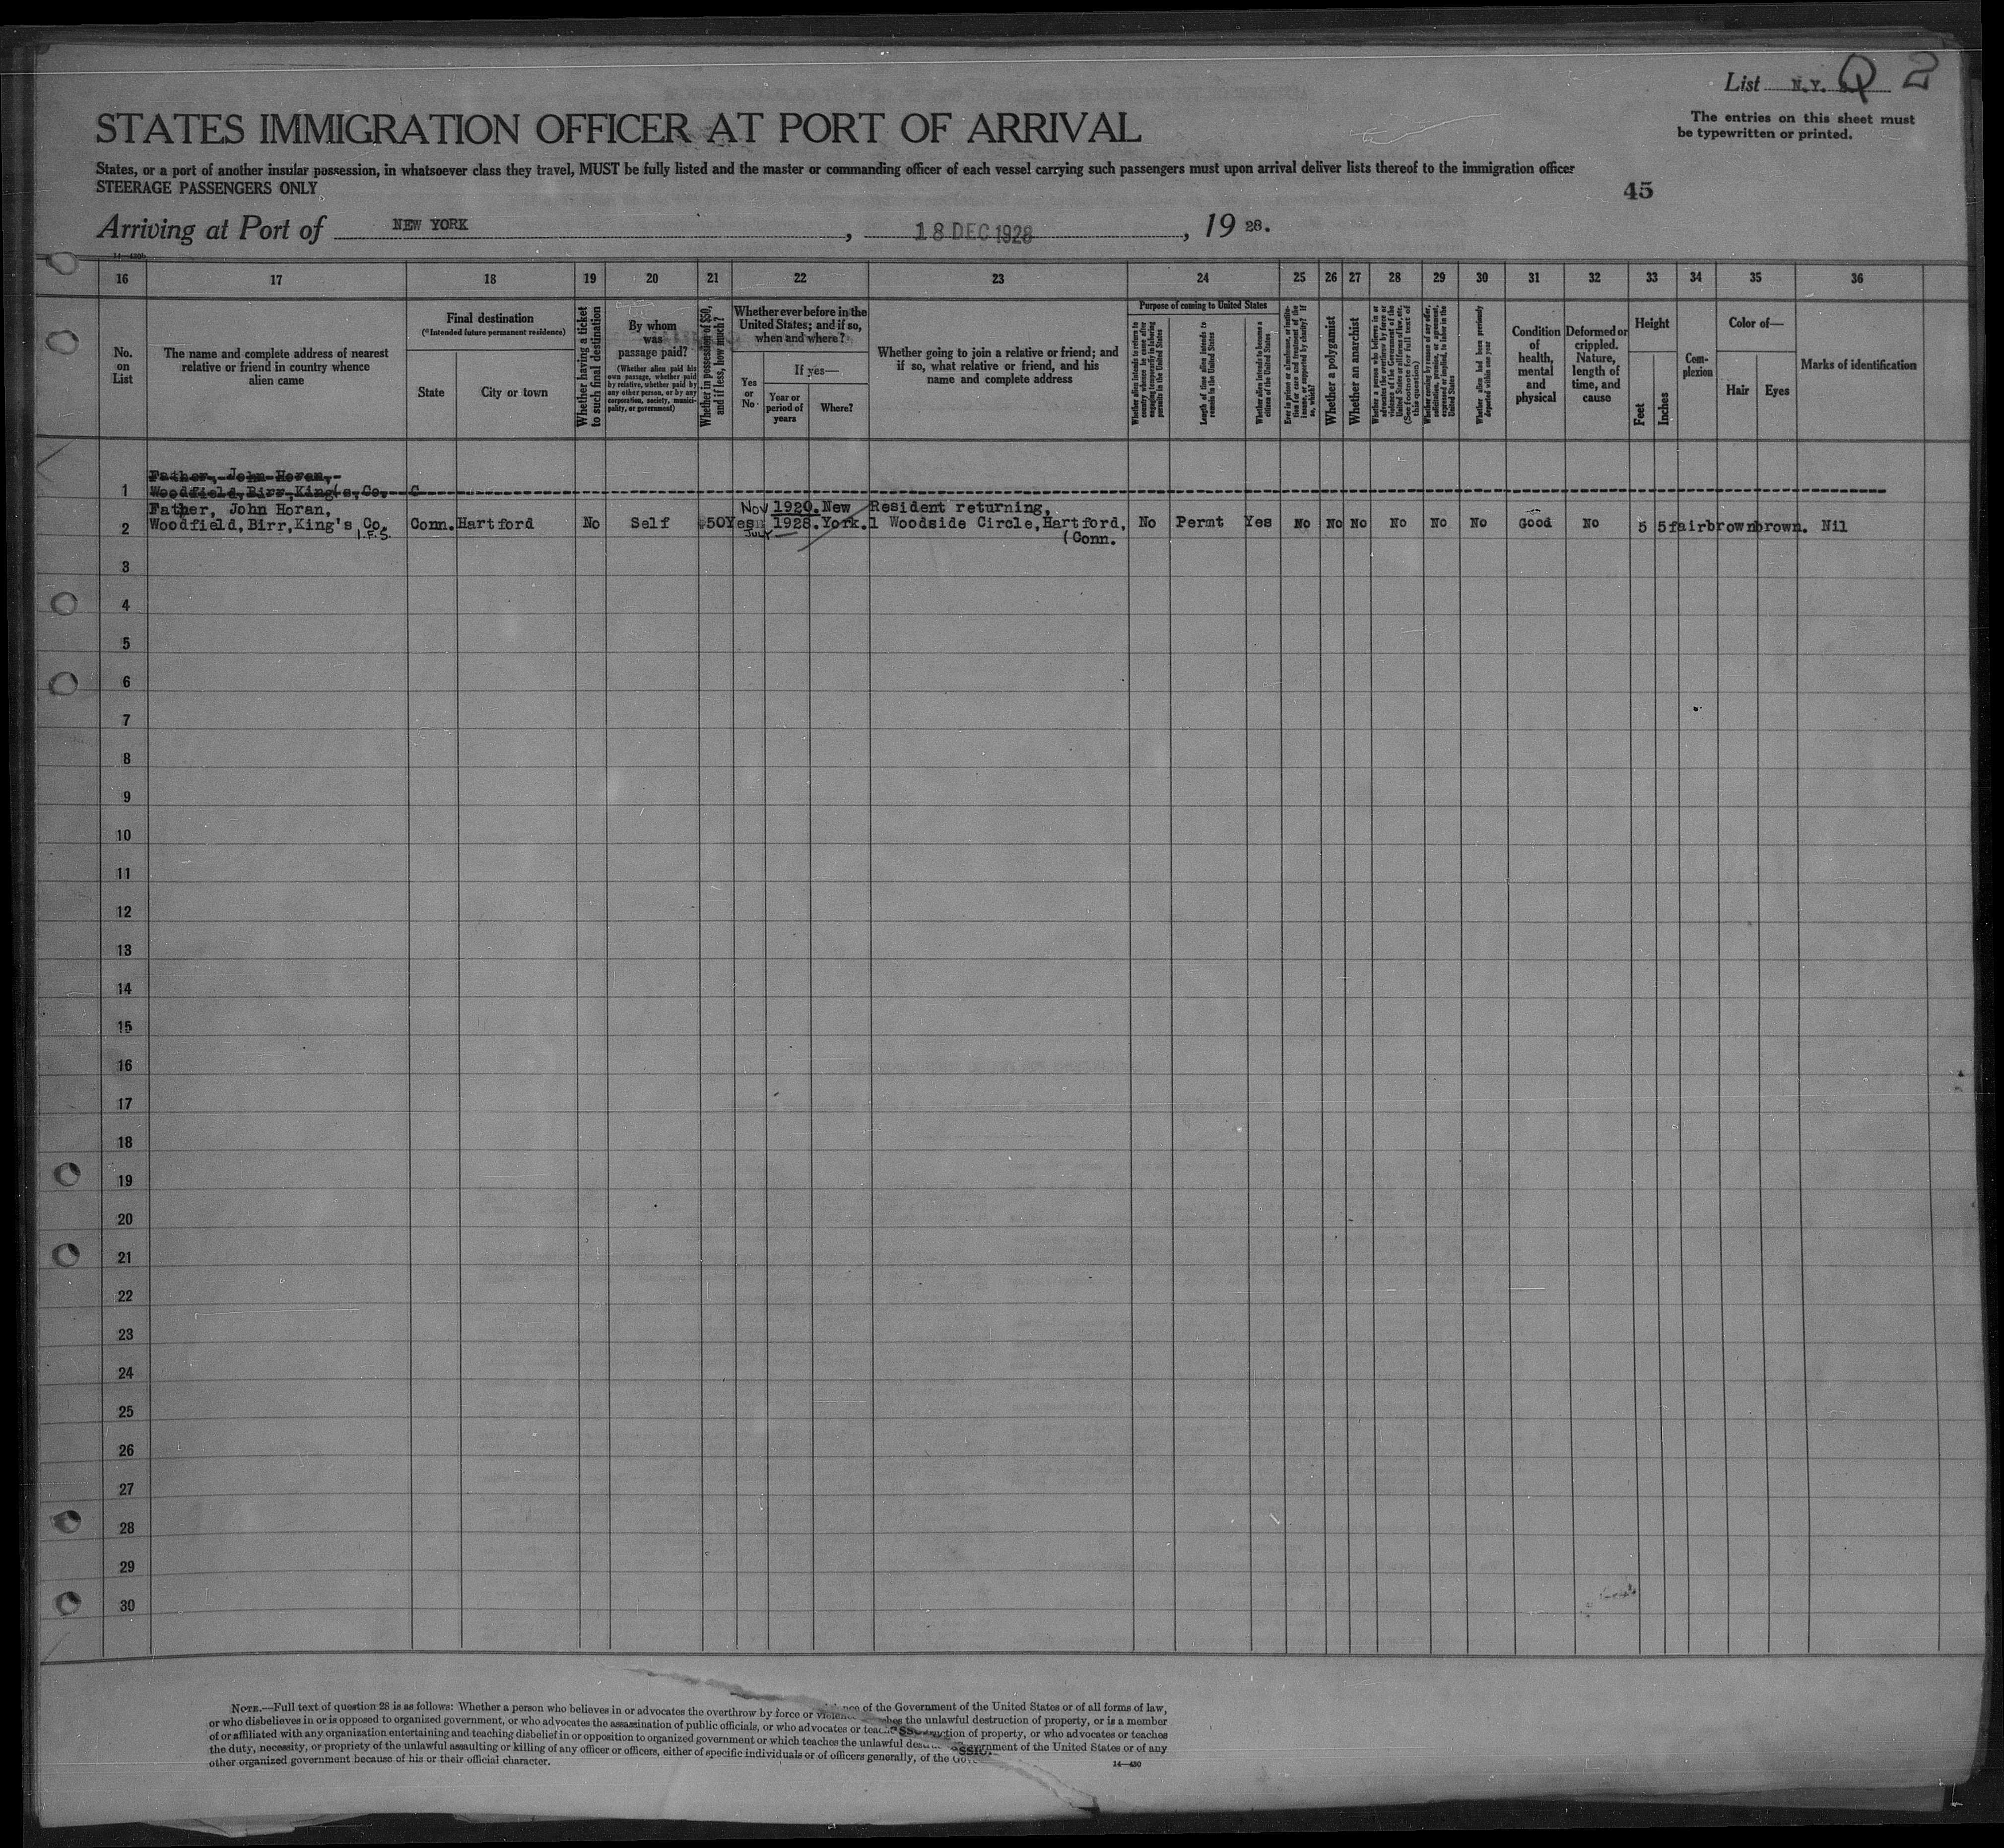 List N.Y. Q 2
The entries on this sheet must
be typewritten or printed.
STATES IMMIGRATION OFFICER AT PORT OF ARRIVAL
States, or a port of another insular possession, in whatsoever class they travel, MUST be fully listed and the master or commanding officer of each vessel carrying such passengers must upon arrival deliver lists thereof to the immigration officer
STEERAGE PASSENGERS ONLY
45
Arriving at Port of NEW YORK, 18 DEC 1928, 19 28.
14—480b
16 17 18 19 20 21 22 23 24 25 26 27 28 29 30 31 32 33 34 35 36
No.
on
List
The name and complete address of nearest
relative or friend in country whence
alien came
Final destination
(*Intended future permanent residence)
State
City or town
Whether having a ticket
to such final destination
By whom
was
passage paid?
(Whether alien paid his
own passage, whether paid
by relative, whether paid by
any other person, or by any
corporation, society, munici-
pality, or government)
Whether in possession of $50,
and if less, how much?
Whether ever before in the
United States; and if so,
when and where?
If yes—
Yes
or
No
Year or
period of
years
Where?
Whether going to join a relative or friend; and
if so, what relative or friend, and his
name and complete address
Purpose of coming to United States
Whether alien intends to return to
country whence he came after
engaging temporarily in laboring
pursuits in the United States
Length of time alien intends to
remain in the United States
Whether alien intends to become a
citizen of the United States
Ever in prison or almshouse, or institu-
tion for care and treatment of the
insane, or supported by charity? If
so, which?
Whether a polygamist
Whether an anarchist
Whether a person who believes in or
advocates the overthrow by force or
violence of the Government of the
United States or all forms of law, etc.
(See footnote for full text of
this question)
Whether coming by reason of any offer,
solicitation, promise, or agreement,
expressed or implied, to labor in the
United States
Whether alien had been previously
deported within one year
Condition
of
health,
mental
and
physical
Deformed or
crippled.
Nature,
length of
time, and
cause
Height
Feet
Inches
Com-
plexion
Color of—
Hair
Eyes
Marks of identification
Father, John Horan,
1 Woodfield, Birr, King's, Co. C
Father, John Horan, Nov 1920. New Resident returning,
2 Woodfield, Birr, King's Co. Conn. Hartford No Self $50 Yes 1928. York. 1 Woodside Circle, Hartford, No Permt Yes No No No No No No Good No 5 5 fair brown brown. Nil
I.F.S. JULY (Conn.
3
4
5
6
7
8
9
10
11
12
13
14
15
16
17
18
19
20
21
22
23
24
25
26
27
28
29
30
NOTE.—Full text of question 28 is as follows: Whether a person who believes in or advocates the overthrow by force or violence of the Government of the United States or of all forms of law,
or who disbelieves in or is opposed to organized government, or who advocates the assassination of public officials, or who advocates or teaches the unlawful destruction of property, or is a member
of or affiliated with any organization entertaining and teaching disbelief in or opposition to organized government or which teaches the unlawful destruction of property, or who advocates or teaches
the duty, necessity, or propriety of the unlawful assaulting or killing of any officer or officers, either of specific individuals or of officers generally, of the Government of the United States or of any
other organized government because of his or their official character.
14—480